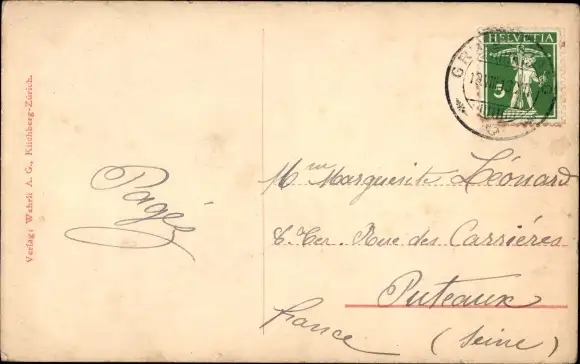 HELVETIA
5
Verlag: Wehrli A. G., Kilchberg-Zürich.
Pagés
Mme Marguerite Léonard
6 Ter. Rue des Carrières
Puteaux
France (Seine)